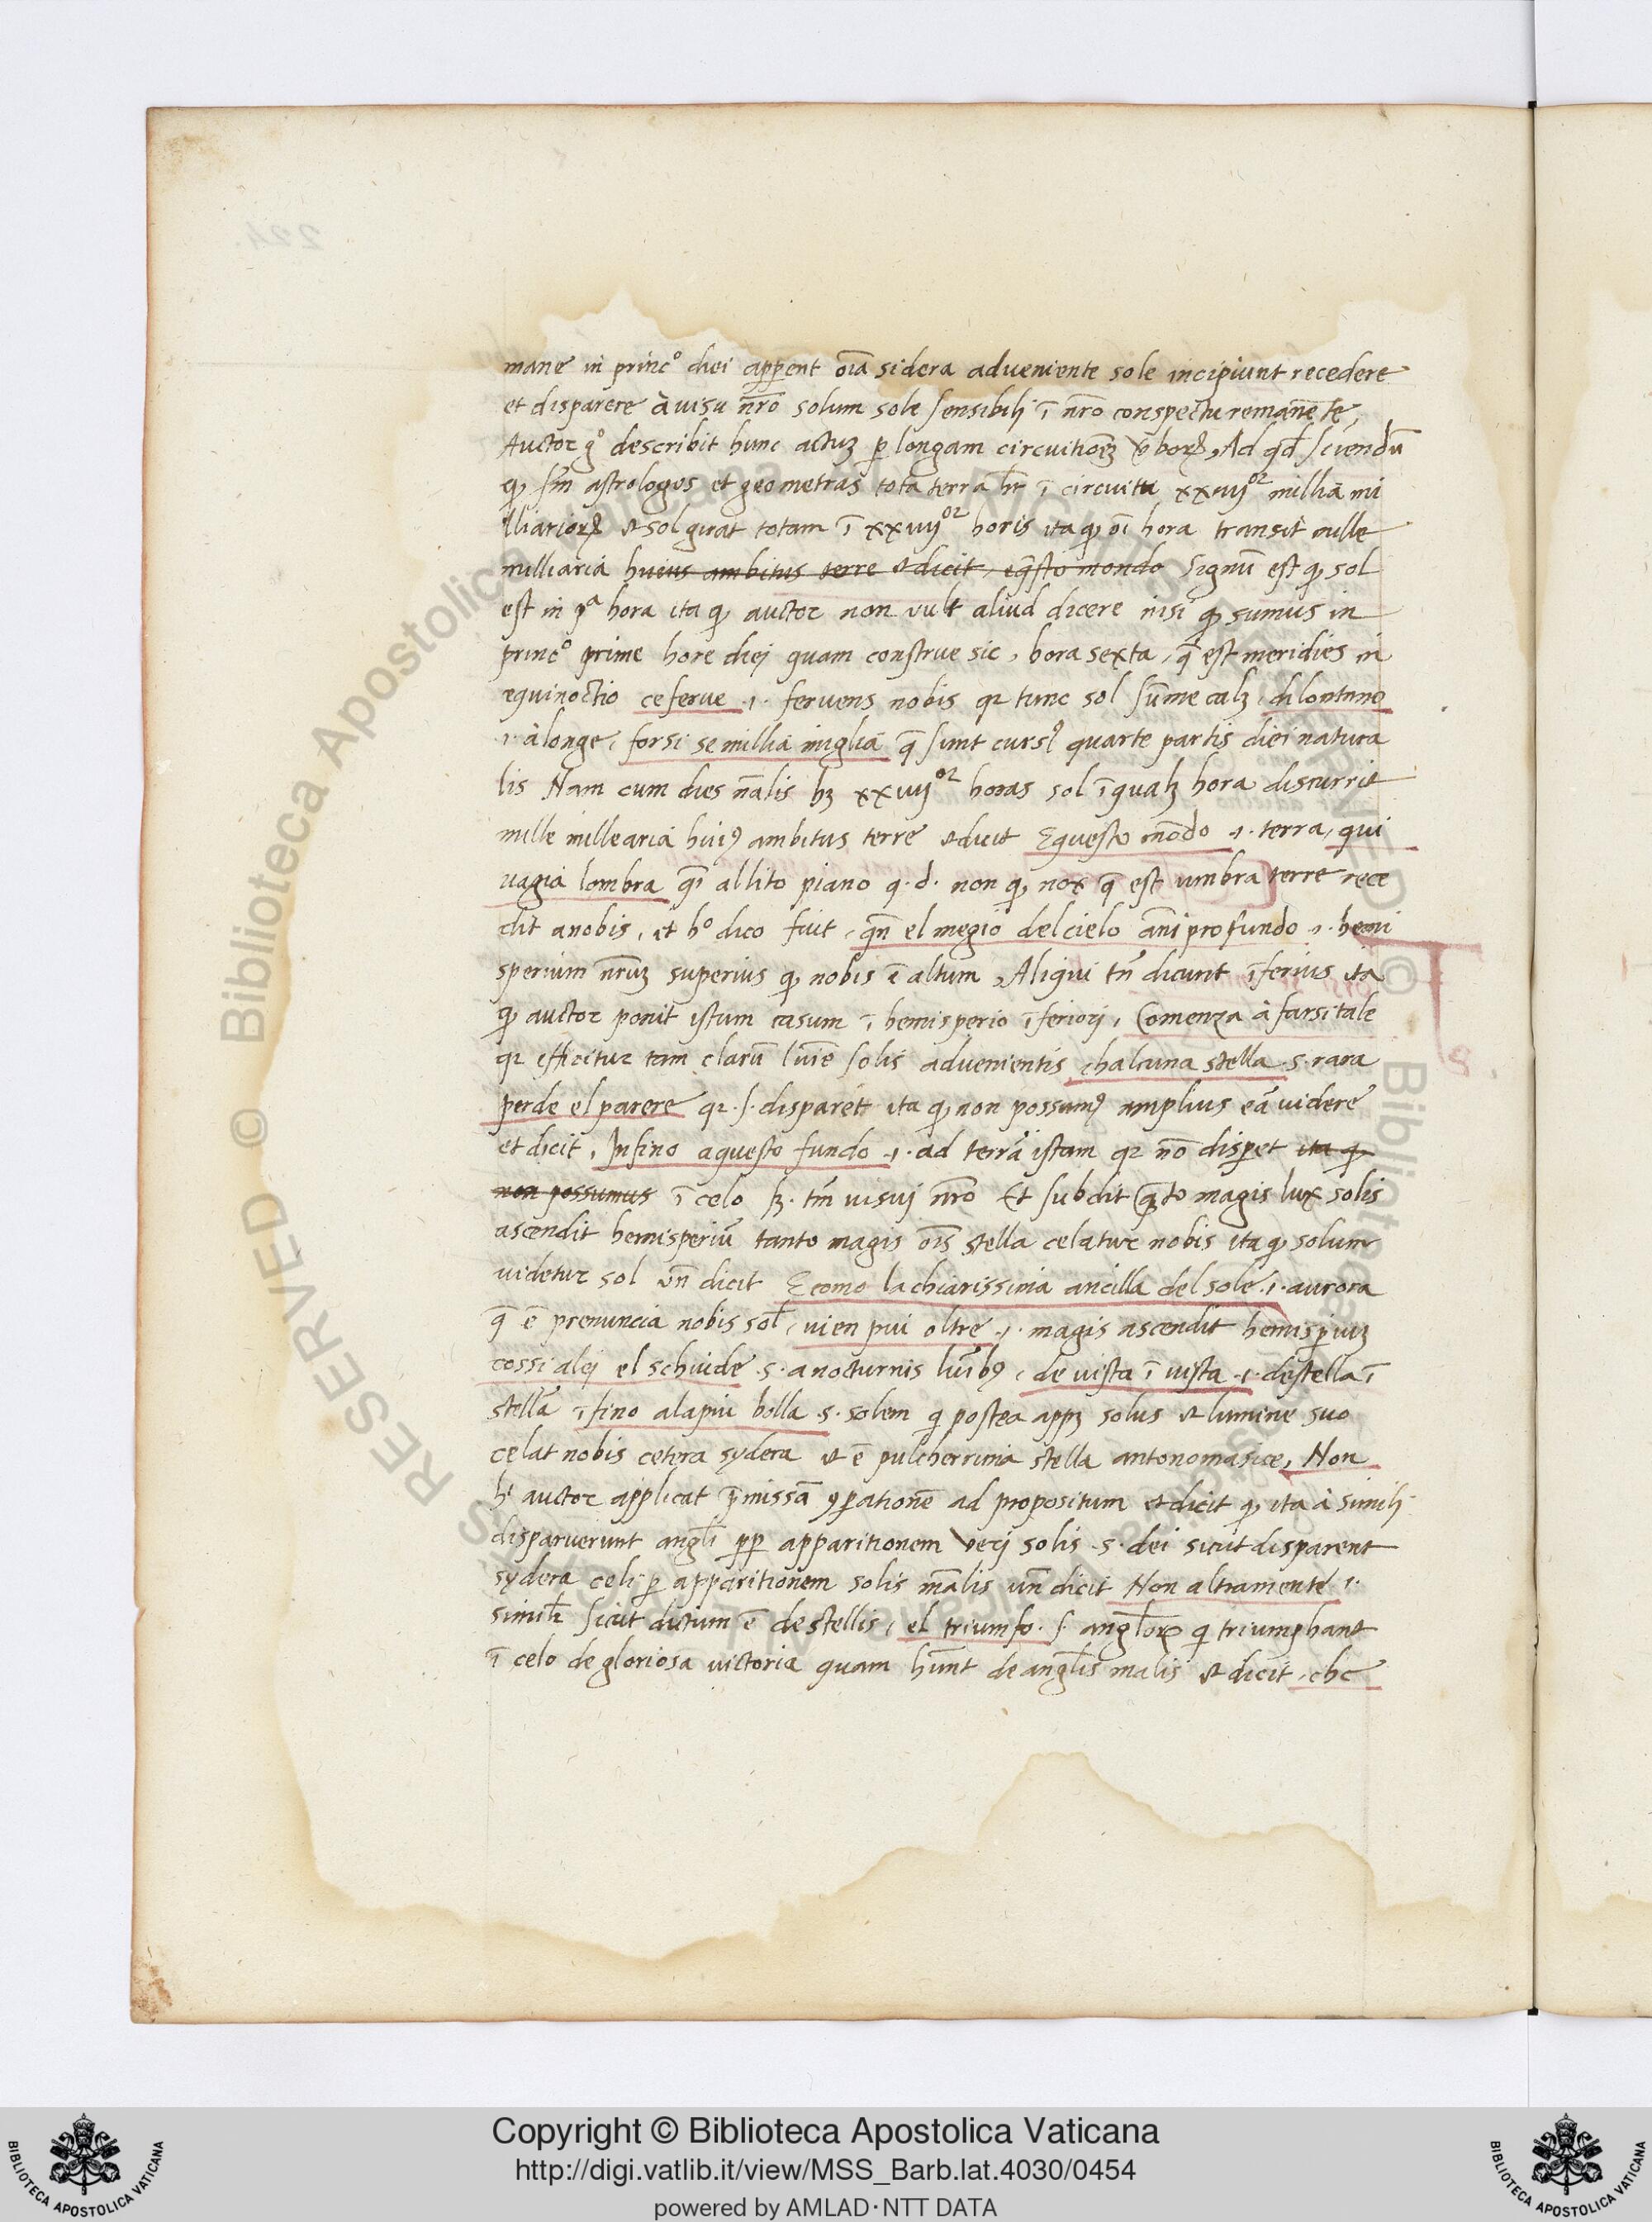 mane in princ° diei apparent oīa sidera adveniente sole incipiunt recedere
et disparere à visu nr̄o solum sole sensibili ī nr̄o conspectu remanēte,
Auctor g° describit hunc actuꝫ ꝑ longam circuitiōeꝫ ꝟboꝝ, Ad qd̄ sciendū
ꝙ sm̄ astrologos et geometras tota terra hꝫ ī circuitu xxiiij or millia mi
lliarioꝝ et sol girat totam ī xxiiij or horis ita ꝙ oī hora transit mille
milliaria huius ambitus terre et dicit, eq̄sto mondo Signū est ꝙ sol
est in pª hora ita ꝙ auctor non vult aliud dicere nisi ꝙ sumus in
princ° prime hore diei quam construe sic, hora sexta, q̄ est meridies in
equinoctio ce ferve .i. fervens nobis qꝛ tunc sol sūme calꝫ, dilontano
.i. à longe, forsi se millia miglia q̄ sunt curs⁹ quarte partis diei natura
lis Nam cum dies nālis hꝫ xxiiij or horas sol ī qualꝫ hora discurrit
mille millearia hui⁹ ambitus terre et dicit Equesto mōdo .i. terra, qui
uagia lombra q̄i allito piano q.d. non ꝙ nox q̄ est umbra terre rece
dit a nobis, et h° dico fuit, qn̄ el megio del cielo ani profundo .i. hemi
sperium nr̄uꝫ superius ꝙ nobis ē altum, Aliqui tn̄ dicunt īferius ita
ꝙ auctor ponit istum casum ī hemisperio īferiori, Comenza à farsi tale
qꝛ efficitur tam clarū luīe solis advenientis chalcuna stella .s. rara
perde el parere qꝛ .s. disparet ita ꝙ non possum⁹ amplius eā videre
et dicit, Infino a questo fundo .i. ad terrā istam qꝛ nō disꝑet ita ꝙ
non possumus ī celo sꝫ. tm̄ visui nr̄o Et subdit q̄to magis lux solis
ascendit hemisperiū tanto magis oīs stella celatur nobis ita ꝙ solum
videtur sol vn̄ dicit E como la chiarissima ancilla del sole .i. aurora
q̄ ē prenuncia nobis sol̄, vien piu oltre .i. magis ascendit hemisꝑiuꝫ
cossi alej el schiude .s. a nocturnis luīb⁹, de vista ī vista .i. de stella ī
stellā īfino ala piu bolla .s. solem q̄ postea appꝫ solus et lumine suo
celat nobis cetera sydera et ē pulcherrima stella antonomasice, Non
hꝰ auctor applicat p̄missā ꝯꝑationē ad propositum et dicit ꝙ ita à simili
disparverunt angl̄i ꝓpꝑ apparitionem veri solis .s. dei sicut disparent
sydera celi ꝑ apparitionem solis mālis un̄ dicit Non altramente .i.
simil̄r sicut dictum ē de stellis, el triumfo .s. angl̄oꝝ q̄ triumphant
ī celo de gloriosa victoria quam hūnt de angl̄is malis et dicit, che
Copyright © Biblioteca Apostolica Vaticana
http://digi.vatlib.it/view/MSS_Barb.lat.4030/0454
powered by AMLAD·NTT DATA